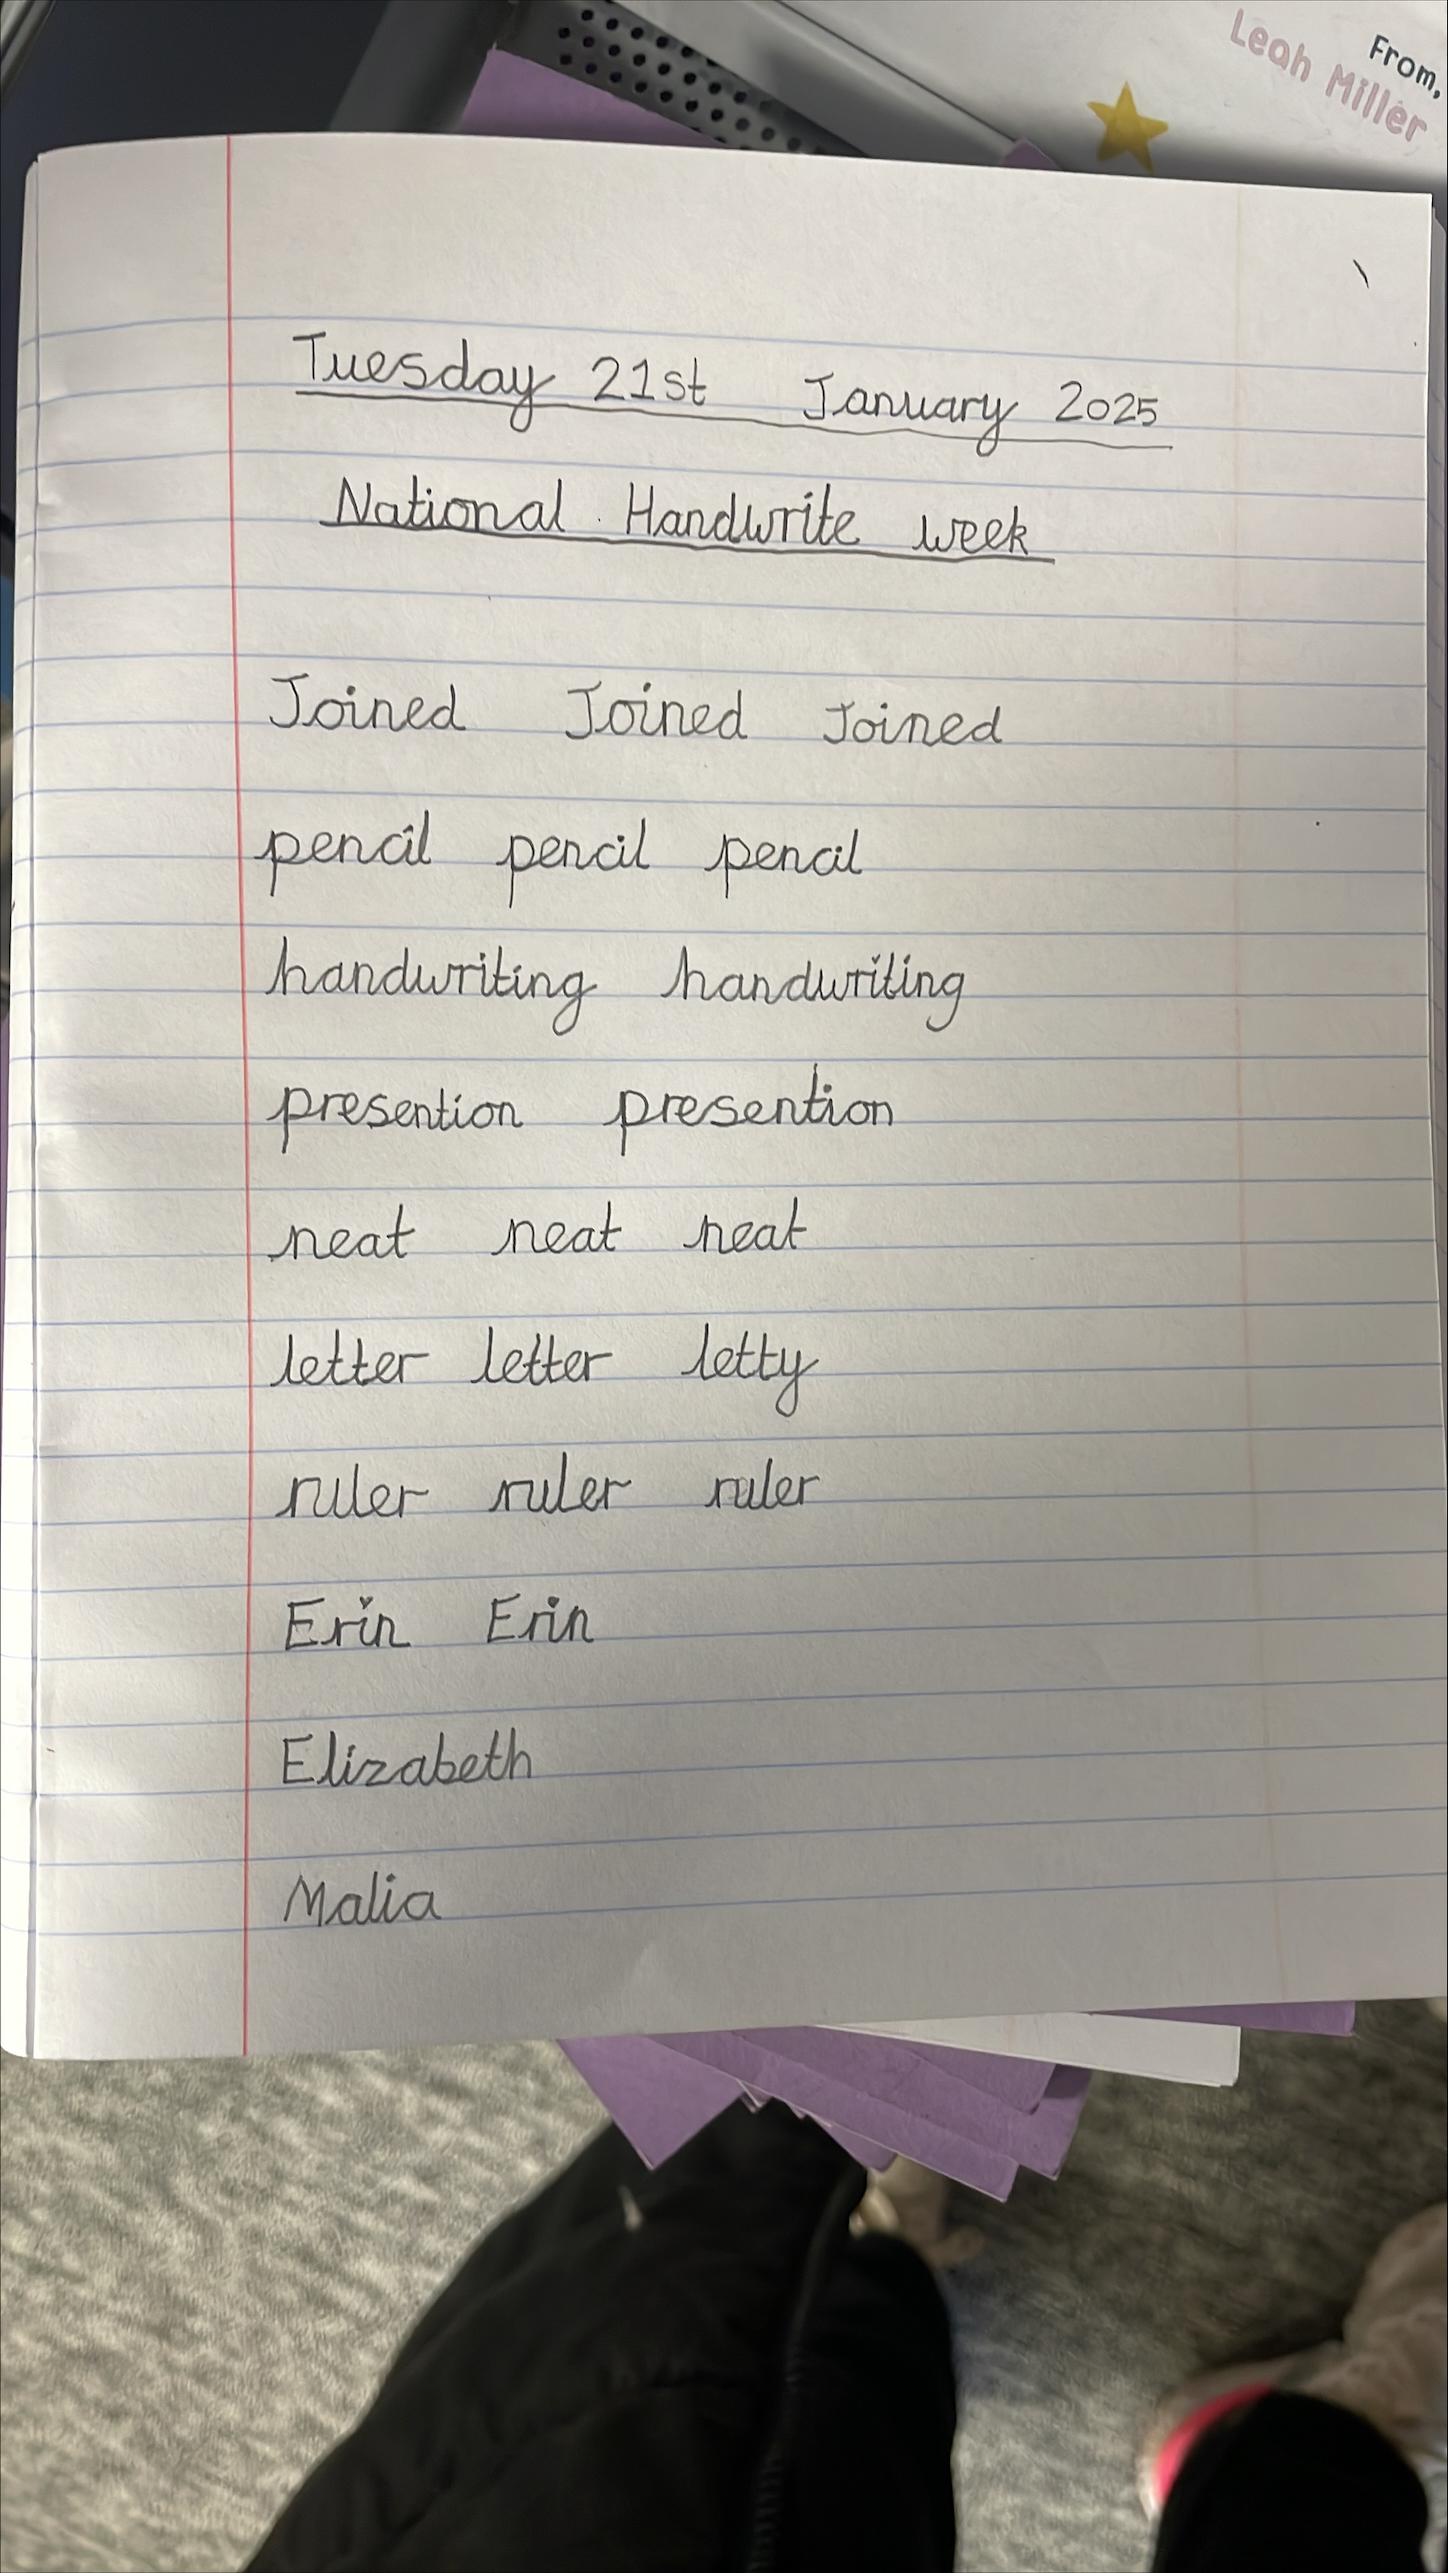 From,
Leah Miller
Tuesday 21st January 2025
National Handwrite week
Joined Joined Joined
pencil pencil pencil
handwriting handwriting
presention presention
neat neat neat
letter letter letty
ruler ruler ruler
Erin Erin
Elizabeth
Malia